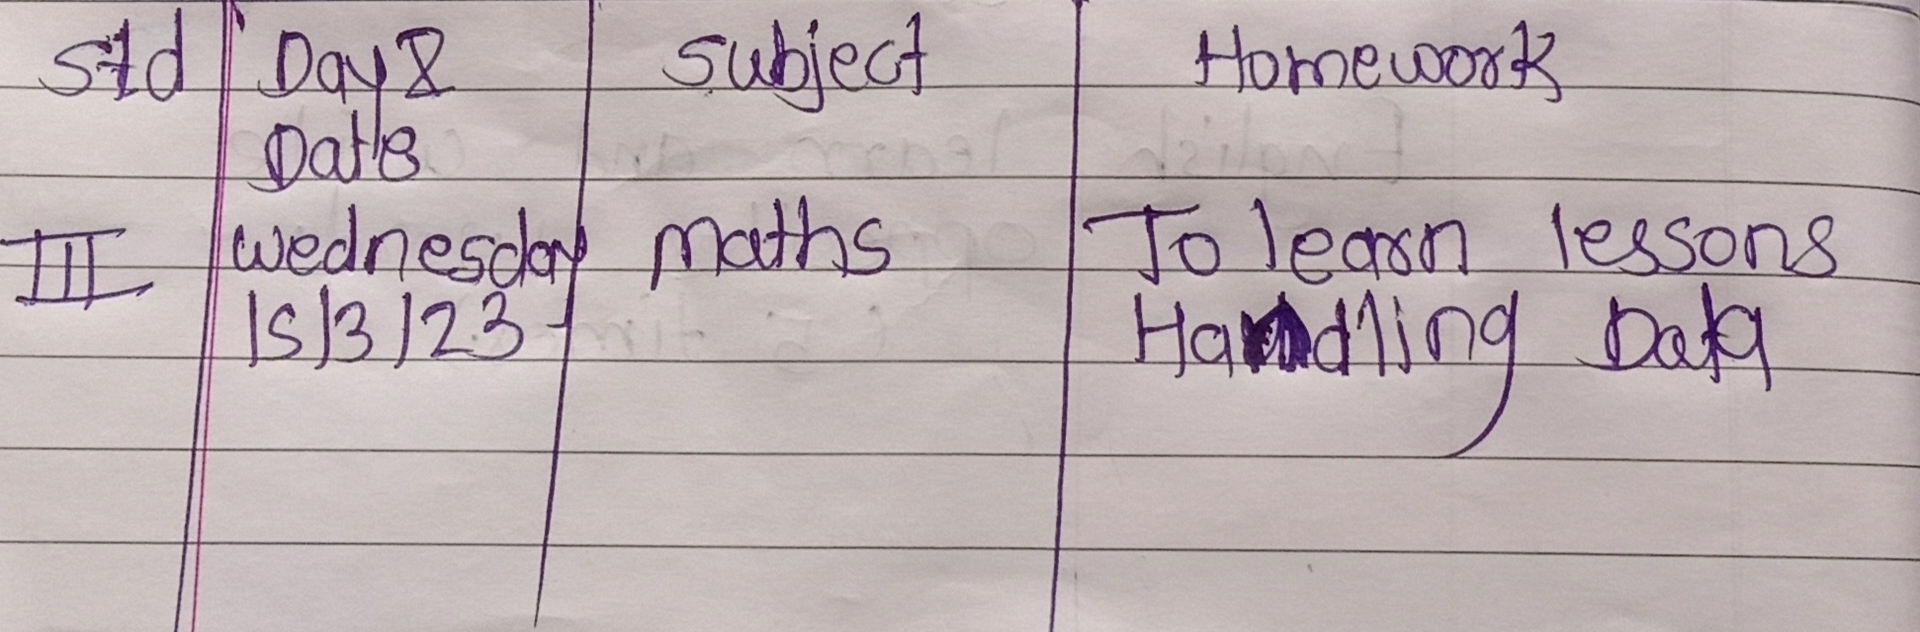 Std Day & Subject Homework
Date
III wednesday maths To learn lessons
15/3/23 Handling Data